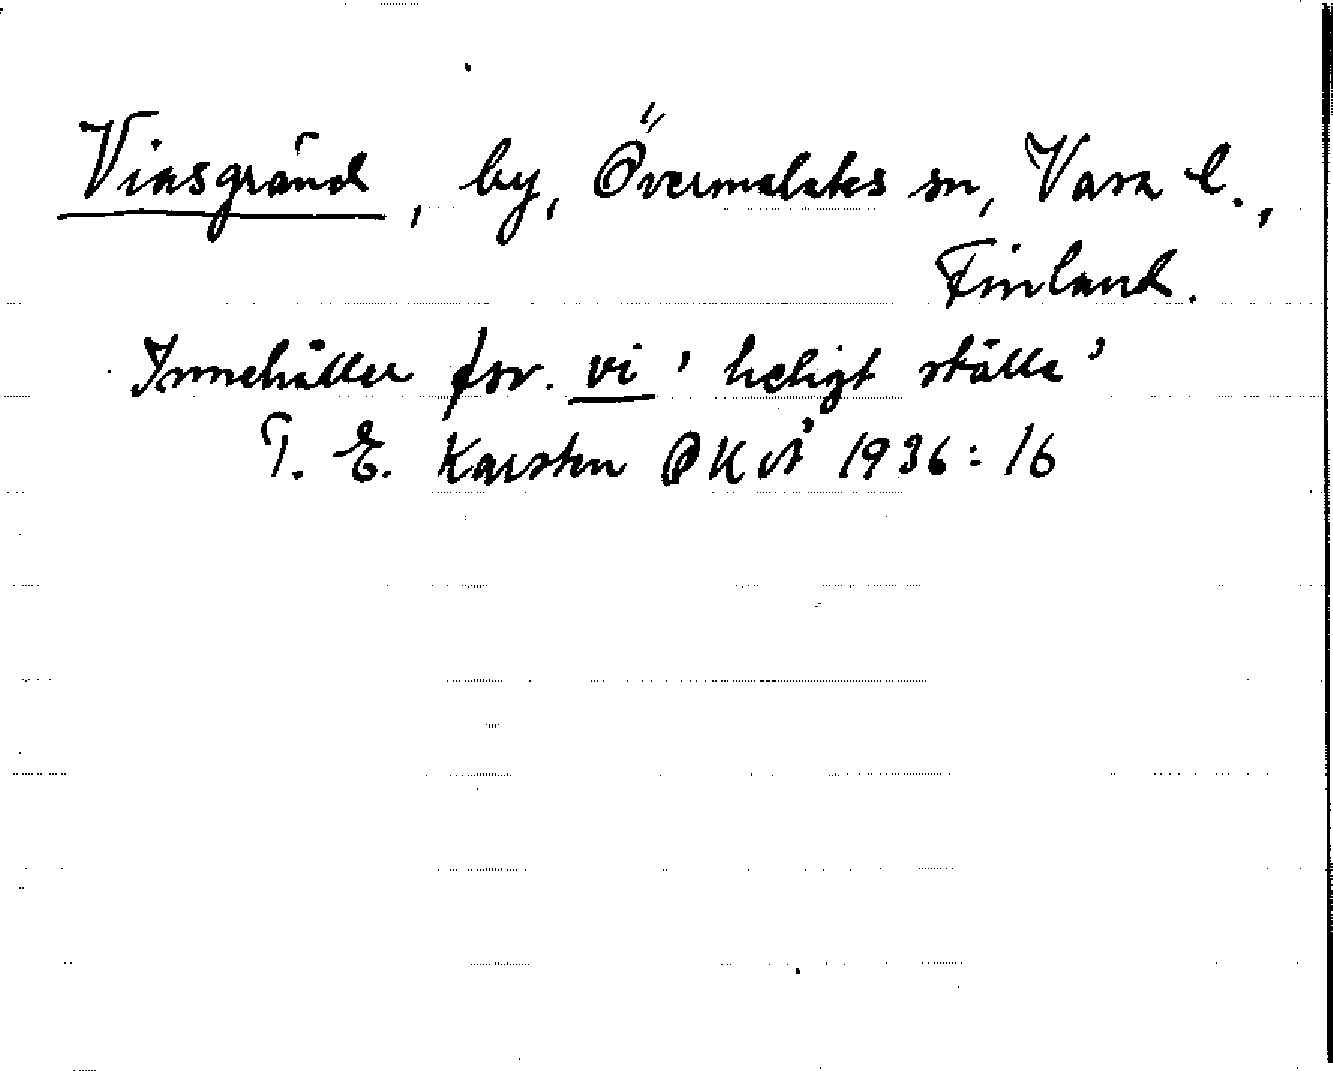 Viasgränd, by, Övermalaks sn, Vasa l.,
Finland.
Innehåller fsv. vi 'heligt ställe'
T. E. Karsten ØKÅ 1936:16